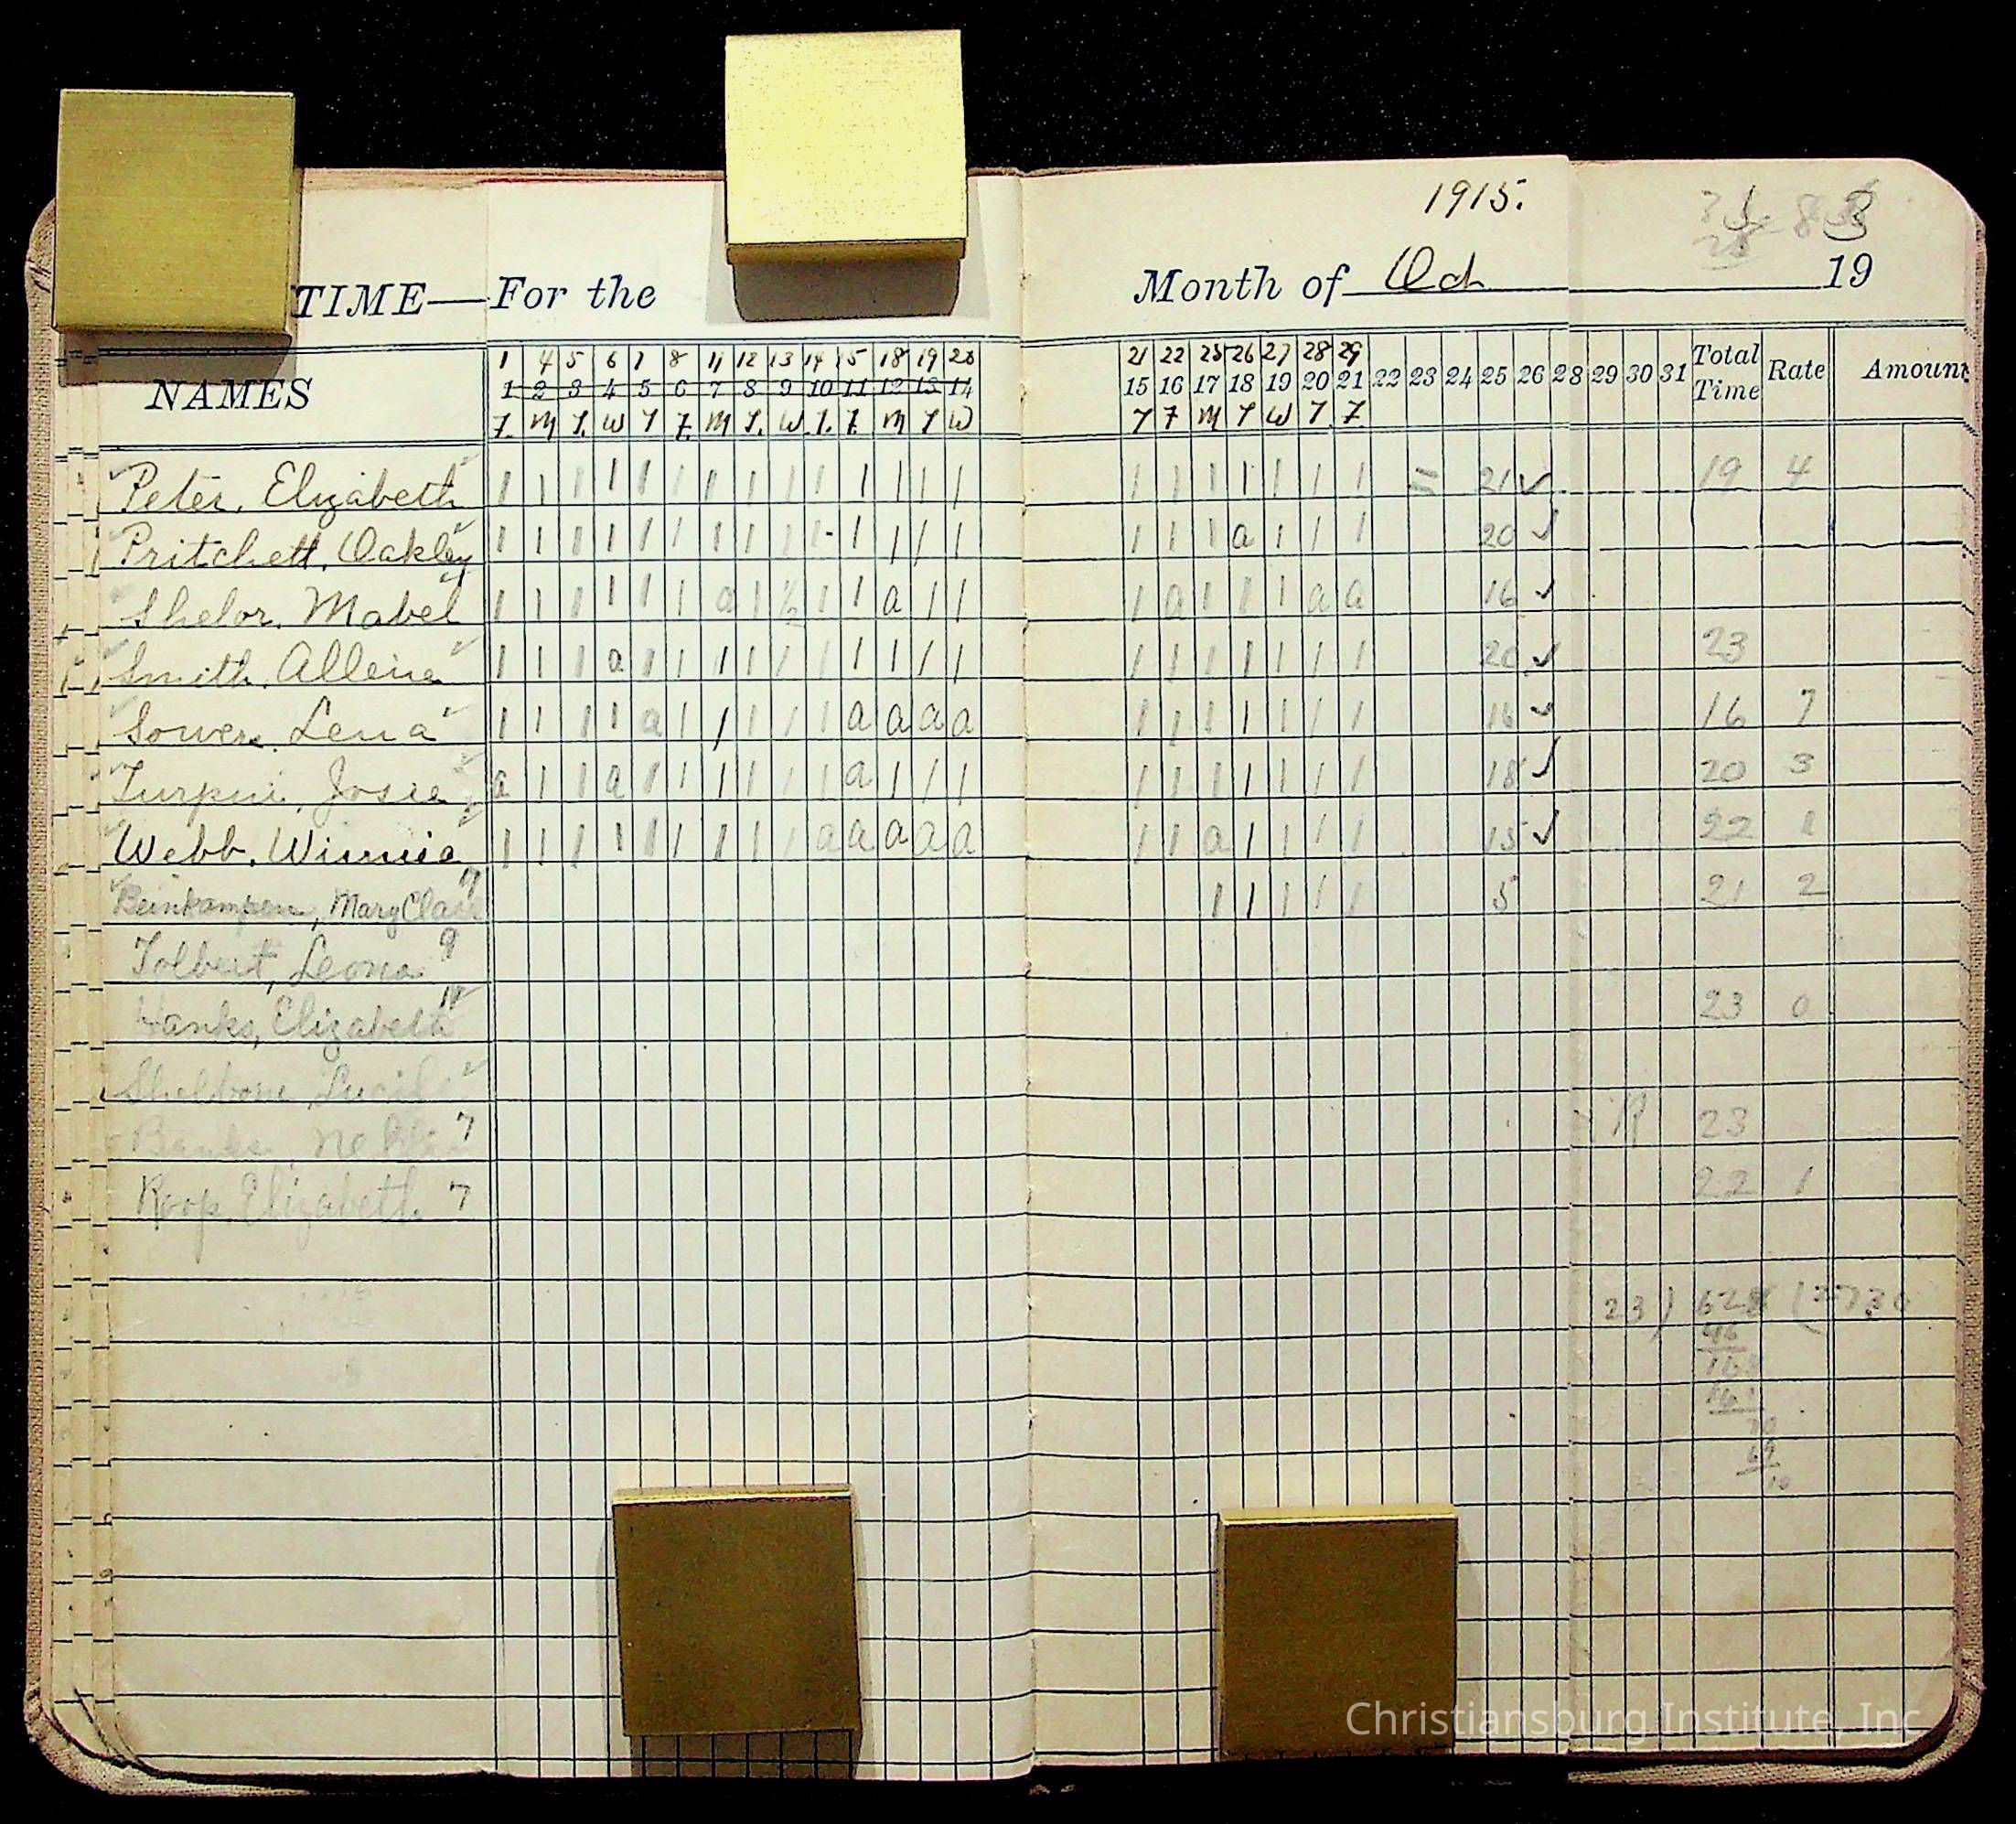 1915.
TIME—For the Month of Oct 19
1 4 5 6 7 8 11 12 13 14 15 18 19 20 21 22 25 26 27 28 29
NAMES 1 2 3 4 5 6 7 8 9 10 11 12 13 14 15 16 17 18 19 20 21 22 23 24 25 26 28 29 30 31 Total Time Rate Amount
F. M T. W T F. M T. W. T. F. M T W T F M T W T. F.
Peter, Elizabeth 1 1 1 1 1 1 1 1 1 1 1 1 1 1 1 1 1 1 1 1 1 = 21 ✓ 19 4
Pritchett, Oakley 1 1 1 1 1 1 1 1 1 1 1 1 1 1 1 1 1 a 1 1 1 20 ✓
Shelor, Mabel 1 1 1 1 1 1 a 1 ½ 1 1 a 1 1 1 a 1 1 1 a a 16 ✓
Smith, Allene 1 1 1 a 1 1 1 1 1 1 1 1 1 1 1 1 1 1 1 1 1 20 ✓ 23
Sowers, Lena 1 1 1 1 a 1 1 1 1 1 a a a a 1 1 1 1 1 1 1 16 ✓ 16 7
Turpin, Josie a 1 1 a 1 1 1 1 1 1 a 1 1 1 1 1 1 1 1 1 1 18 ✓ 20 3
Webb, Winnie 1 1 1 1 1 1 1 1 1 a a a a a 1 1 a 1 1 1 1 15 ✓ 22 1
Mary Clair 1 1 1 1 1 5 21 2
Tolbert, Leona 9
Hanks, Elizabeth 23 0
Shelbone, Lucil
Banks 7 23
Roop, Elizabeth 7 22 1
23 ) 628
46
Christiansburg Institute, Inc